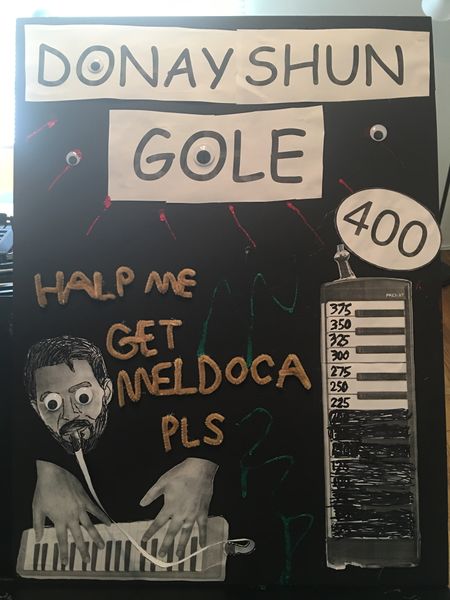 DONAY SHUN
GOLE
400
HALP ME
GET
MELDOCA
PLS
375
350
325
300
275
250
225